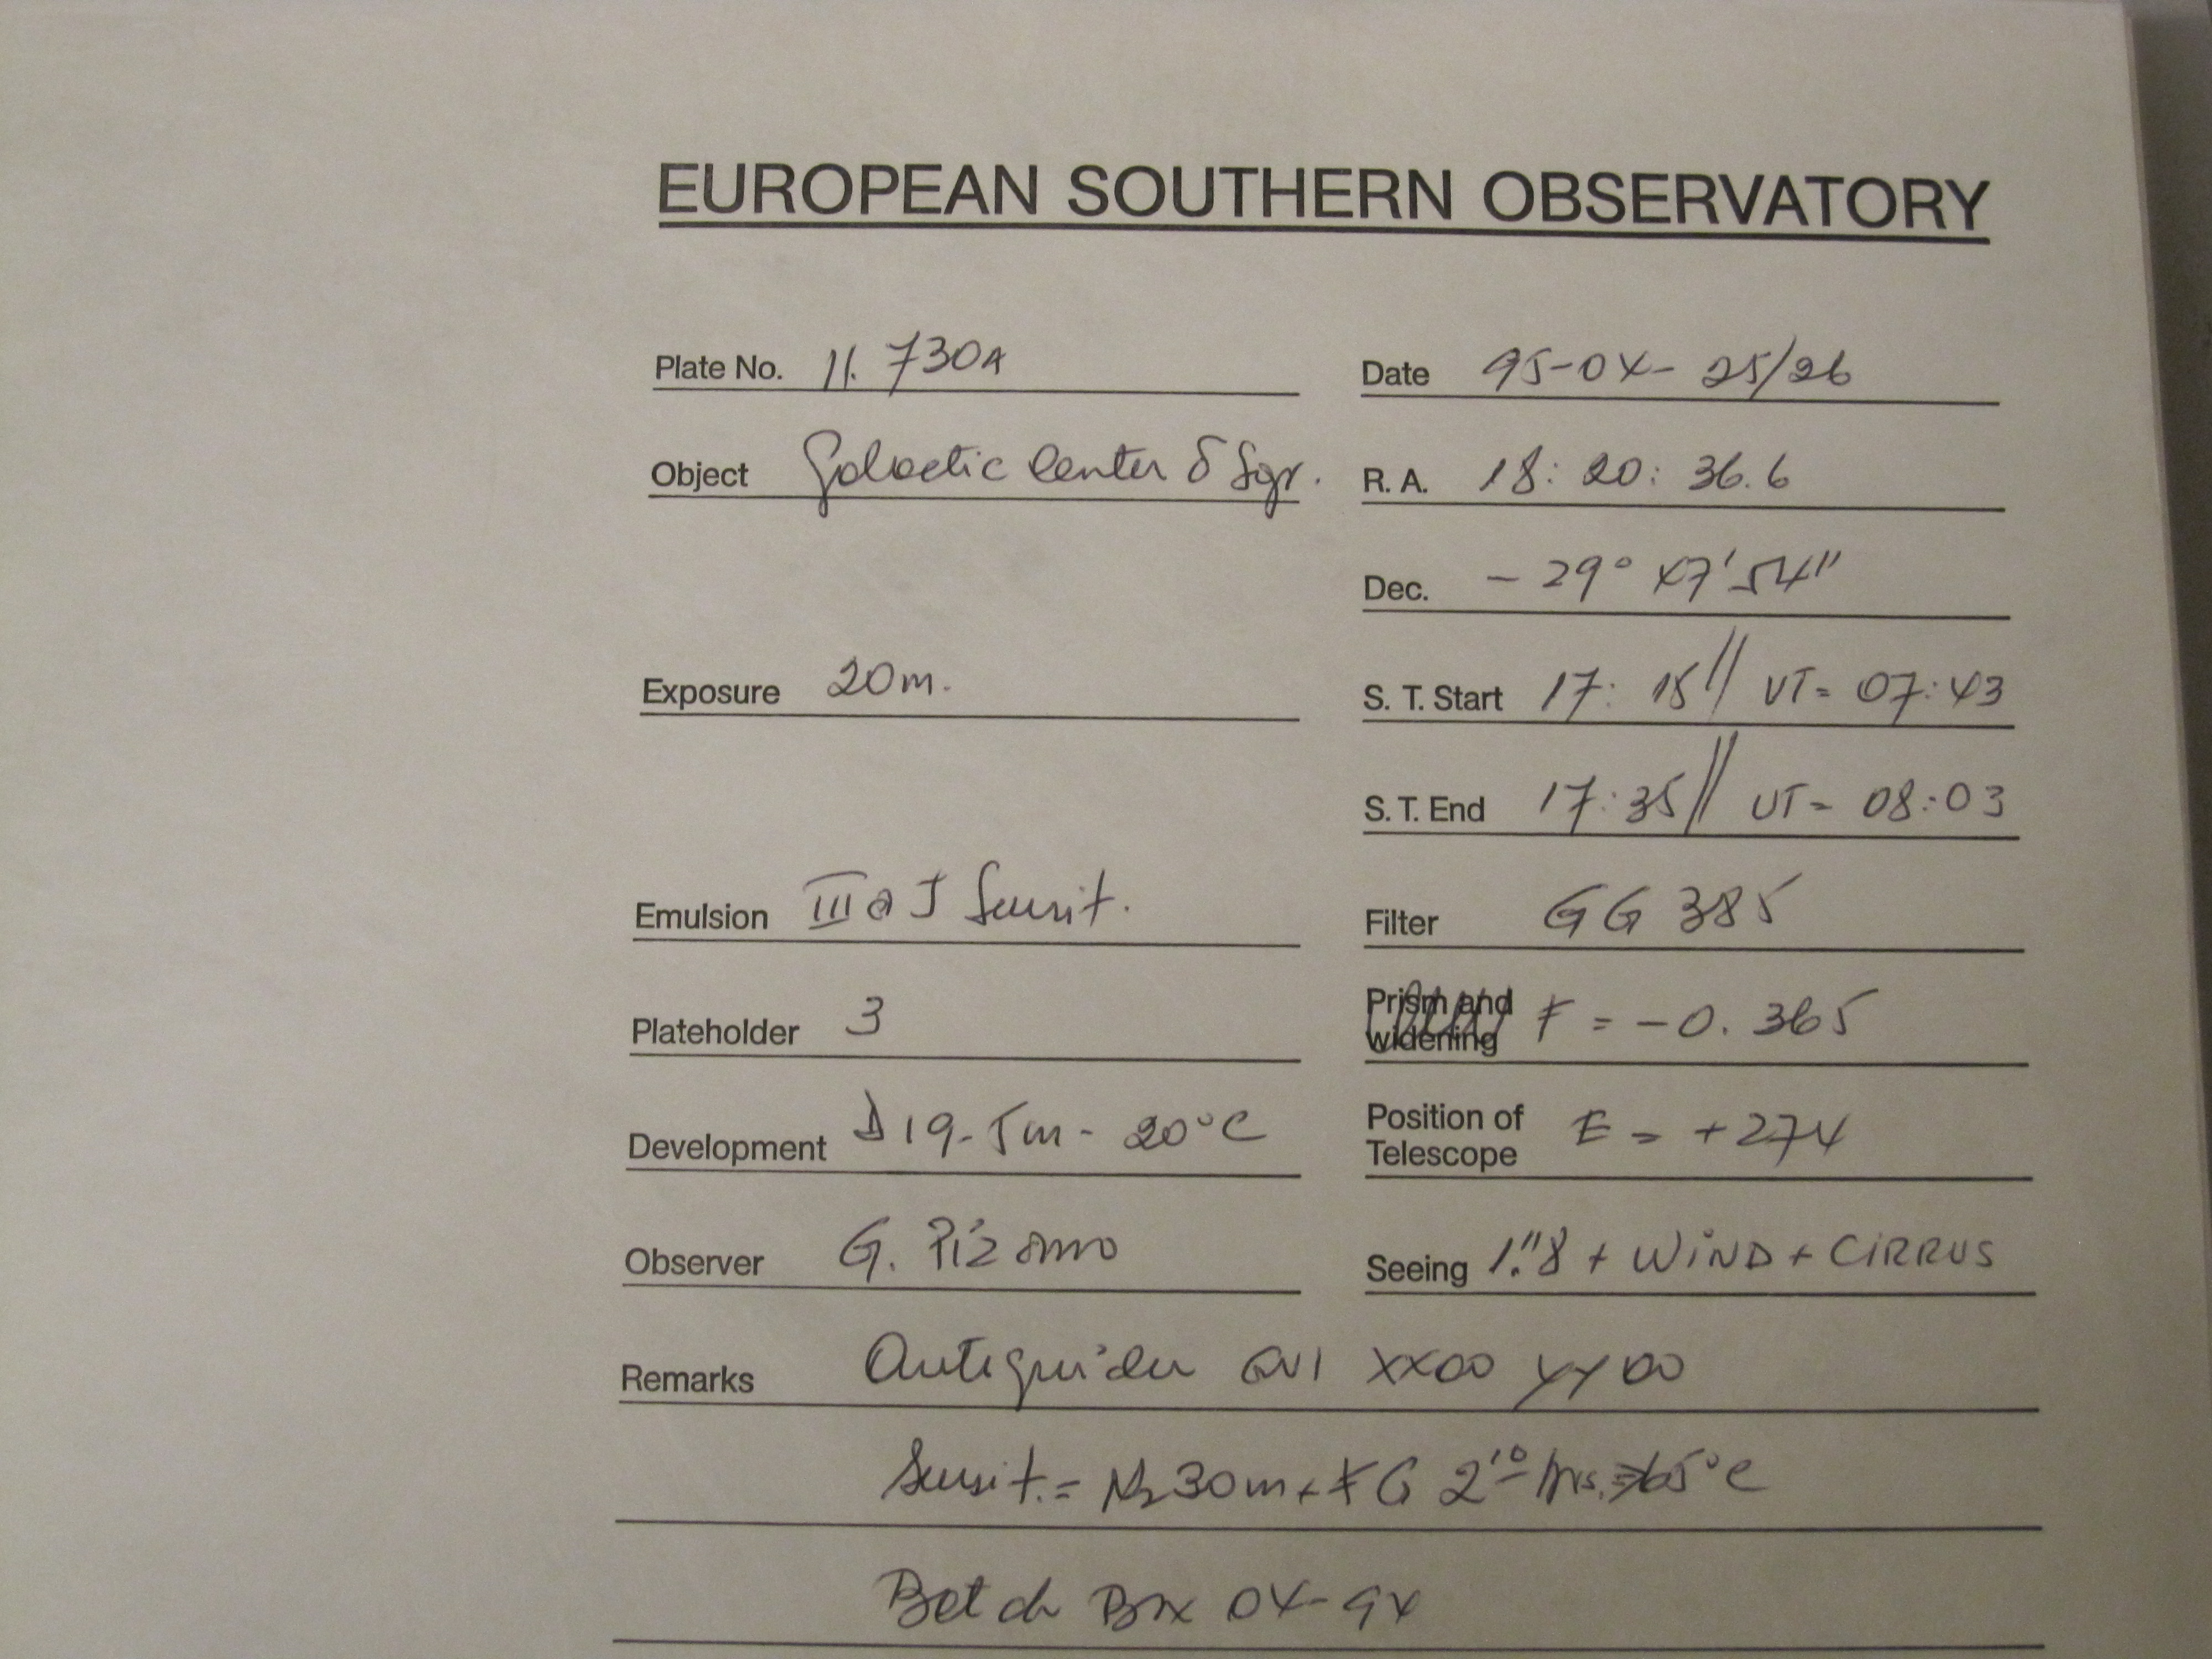 EUROPEAN SOUTHERN OBSERVATORY
Plate No. 11.730A
Date 95-04-25/26
Object Galactic Center δ Sgr.
R. A. 18: 20: 36.6
Dec. -29° 47' 54"
Exposure 20m.
S. T. Start 17: 15 // UT= 07:43
S. T. End 17:35 // UT= 08:03
Emulsion IIIaJ Sensit.
Filter GG 385
Plateholder 3
Prism and widening F = -0.365
Development D19-5m-20°C
Position of Telescope E = +274
Observer G. Pizarro
Seeing 1."8 + WIND + CIRRUS
Remarks Autoguider GV1 XX00 YY00
Sensit.= N2 30m + FG 2¹⁰ hrs. 65°C
Batch Box 04-94